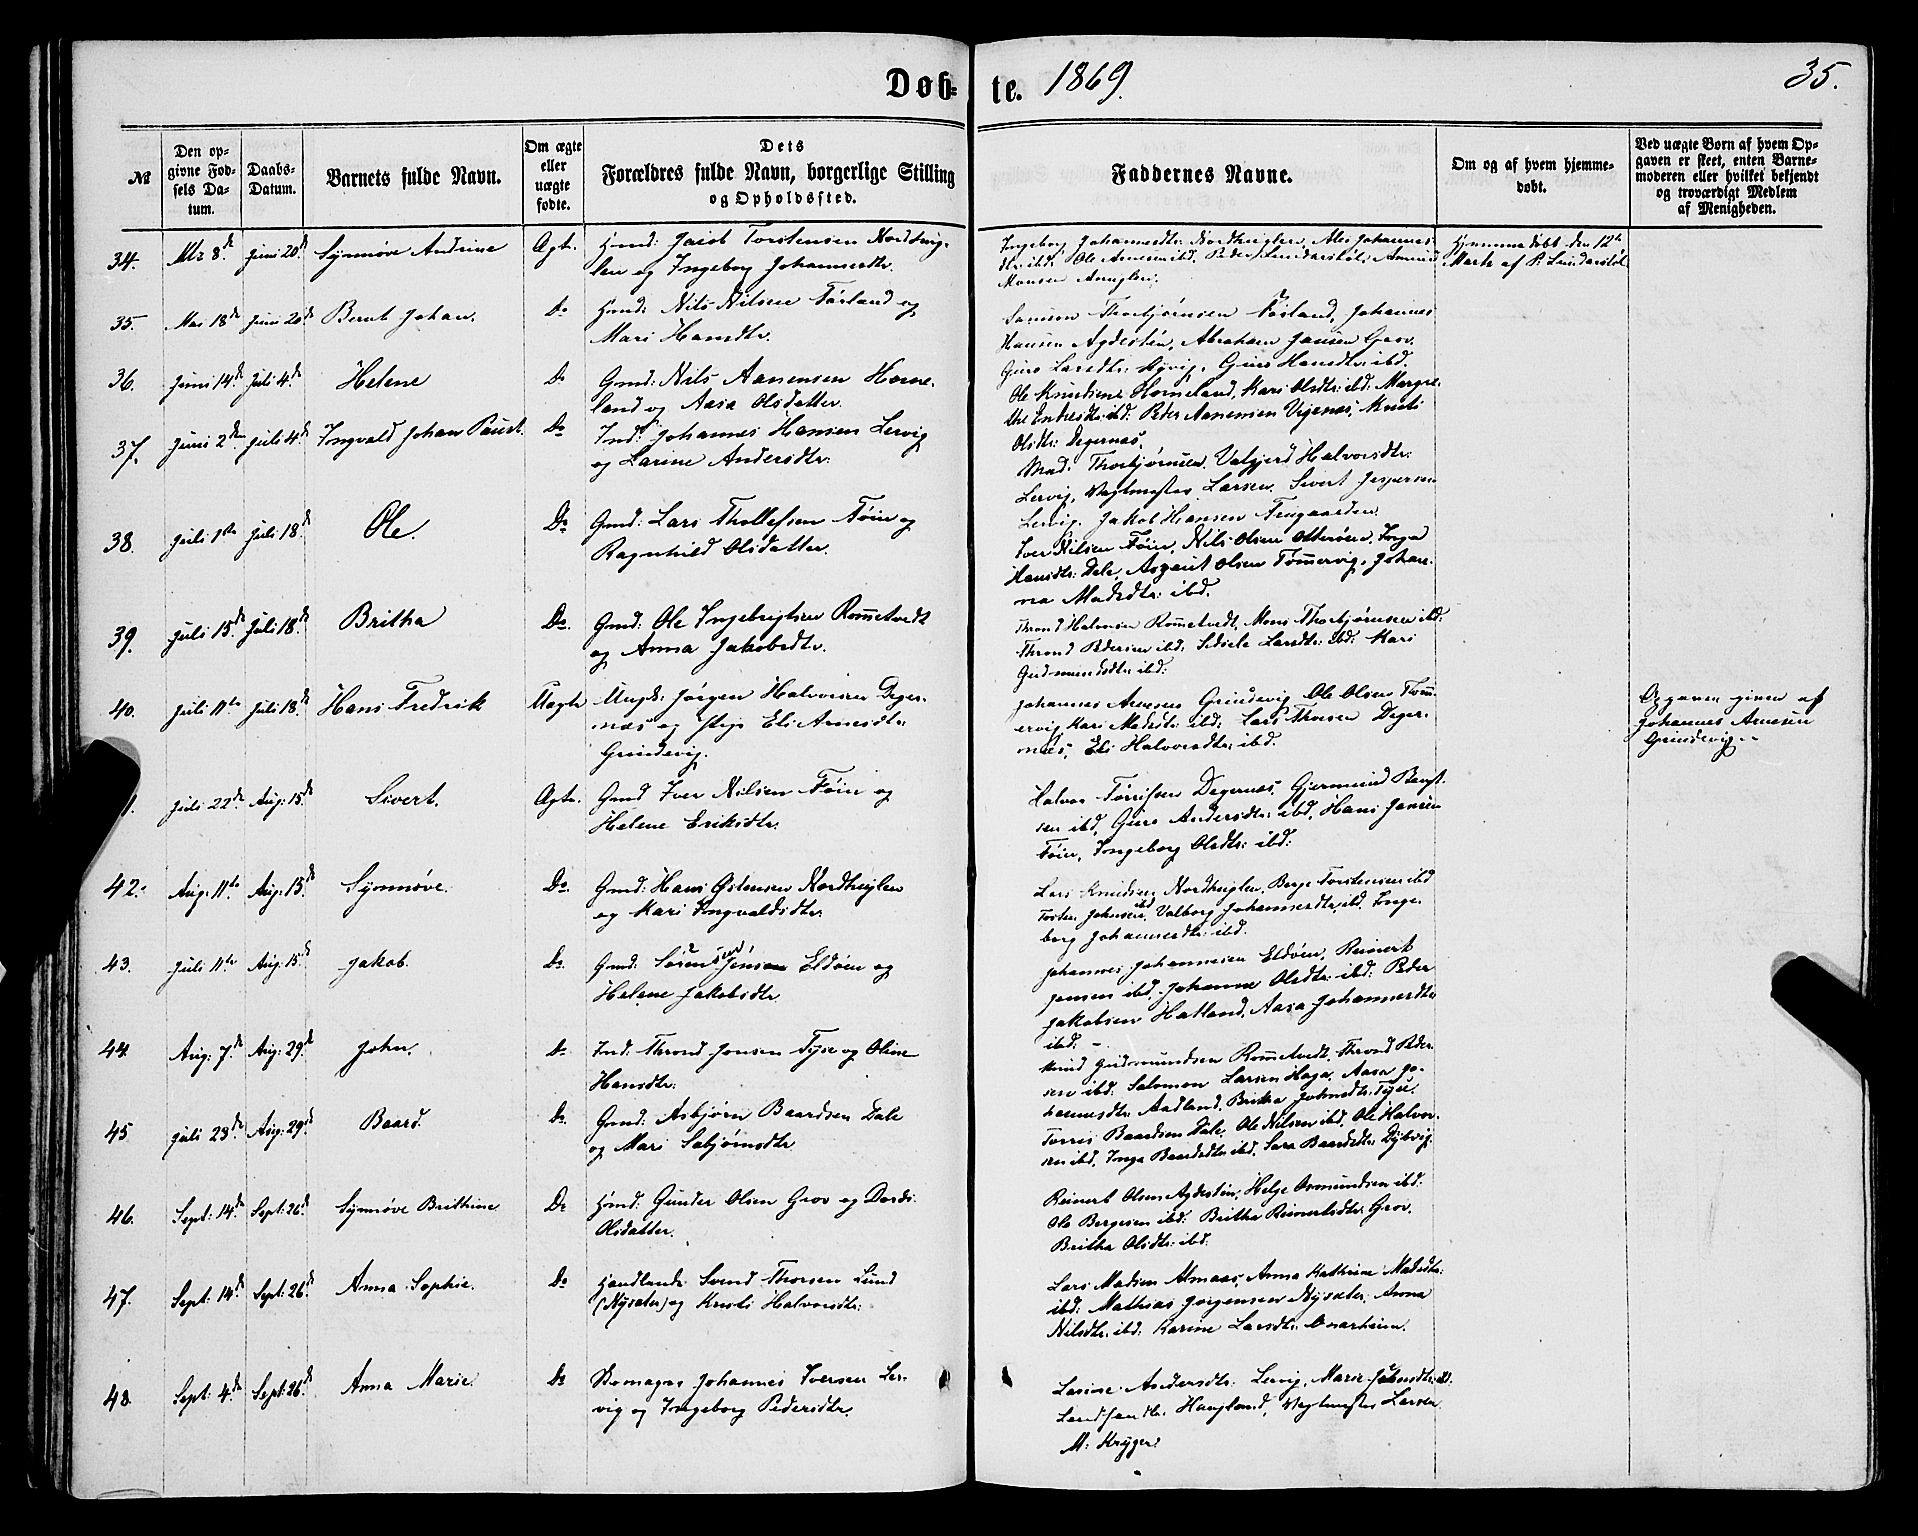 Døb-
te. 1869.
35.
№
Den op-
givne Fød-
sels Da-
tum.
Daabs-
Datum.
Barnets fulde Navn.
Om ægte
eller
uægte
fødte.
Dets
Forældres fulde Navn, borgerlige Stilling
og Opholdssted.
Faddernes Navne.
Om og af hvem hjemme-
døbt.
Ved uægte Børn af hvem Op-
gaven er skeet, enten Barne-
moderen eller hvilket bekjendt
og troværdigt Medlem
af Menigheden.
34. Mr 8de Juni 20de Synnøve Andrine Ægte Hmd: Jacob Torstensen Nordhug-
len og Ingeborg Johannesdtr.
Ingeborg Johannesdtr. Nordhuglen, Johannes-
dtr. ibd. Ole Arnesen ibd. Peder Lundarstøl,
Monsen
Hjemmedøbt den 12te
Marts af P. Lundarstøl
35. Mai 18de Juni 20de Bernt Johan. Do Hmd: Nils Nilsen Førland og
Mari Hansdtr.
Samson Thorbjørnsen Førland, Johannes
Hansen Agdestein, Abraham Jansen Grov,
Guro Larsdtr. Guro Hansdtr. ibd.
36. Juni 14de Juli 4de Helene Do Gmd: Nils Aanensen Horne-
land og Aasa Olsdatter.
Ole Knudsen Horneland, Kari Olsdtr: ibd: Margre-
the ibd: Peder Aanensen Vigenes, Kristi
Olsdtr: Degernæs.
37. Juni 2den Juli 4de Ingvald Johan Paust. Do Ind: Johannes Hansen Lervig
og Larine Andersdtr:
Mad: Thorbjørnsen, Valgjerd Halvorsdtr:
Lervig, Vagtmester Larsen, Sivert Jespersen
Lervig. Jakob Hansen Frugaarden.
38. Juli 1ste Juli 18de Ole. Do Gmd: Lars Thollefsen Føien og
Ragnhild Olsdatter.
Iver Nilsen Føien, Nils Olsen Otterøen, Inga
Hansdtr: Dale, Asgaut Olsen Tømmervig, Johan-
na Madsdtr: ibd.
39. Juli 15de Juli 18de Britha Do. Gmd: Ole Ingebrigtsen Rommetvedt
og Anna Jakobsdtr.
Thrond Halvorsen Rommetvedt, Mons Thorbjørnsen ibd:
Thrond Pedersen ibd: Sidsele Larsdtr: ibd: Kari
Gudmundsdtr: ibd:
40. Juli 11te Juli 18de Hans Fredrik Uægte Ungk: Jørgen Halvorsen Deger-
næs og Pige Eli Arnesdtr:
Grindevig.
Johannes Arnesen Grindevig, Ole Olsen Tømm-
ervig, Kari Madsdtr: ibd: Lars Thorsen Deger-
næs, Eli Halvorsdtr: ibd.
Opgaven given af
Johannes Arnesen
Grindevig.
Juli 22de Aug: 15de Sivert. Ægte. Gmd Iver Nilsen Føien og
Helene Eriksdtr.
Halvor Torrisen Degernæs, Gjermund Bengt-
sen ibd, Guro Andersdtr: ibd, Hans Jansen
Føien, Ingeborg Olsdtr: ibd:
42. Aug: 11te Aug: 15de Synnøve. Do. Gmd: Hans Østensen Nordhuglen
og Mari Ingvaldsdtr:
Lars Knudsen Nordhuglen, Berge Torstensen ibd
Johnsen ibd, Valborg Johannesdtr: ibd. Inge-
borg Johannesdtr: ibd.
43. Juli 11te Aug: 15de Jakob. Do. Gmd: Søren Jensen Eldøen og
Helene Jakobsdtr.
Johannes Johannesen Eldøen, Reinert
Jensen ibd. Johanne Olsdtr: ibd: Peder
Jakobsen Hatland, Aasa Johannesdtr:
ibd: -
44. Aug: 7de Aug: 29de John. Do Ind: Thrond Jonsen Tyse og Oline
Hansdtr:
Knud Gudmundsen Rommetvedt, Thrond Peder-
sen ibd: Salomon Larsen Haga, Aasa Jo-
hannesdtr: Aadland, Britha Johnsdtr: Tyse.
45 Juli 23de Aug: 29de Baard. Do Gmd: Asbjørn Baardsen Dale
og Mari Sebjørnsdtr.
Torris Baardsen Dale, Ole Nilsen ibd, Ole Halvor-
sen ibd, Inga Baardsdtr: ibd, Sara Baardsdtr: Dybvig.
46. Sept: 14de Sept: 26de Synnøve Brithine Do Hmd: Gunder Olsen Grov og Dordi
Olsdatter.
Reinert Olsen Agdestein, Helge Osmundsen ibd:
Ole Bergesen ibd: Britha Reinertsdtr: Grov,
Britha Olsdtr: ibd:
47. Sept: 14de Sept: 26de Anna Sophie. Do Handlende Svend Thorsen Lund
(Nysæter) og Kristi Halvorsdtr:
Lars Madsen Almaas, Anna Kathrine Madsdtr:
ibd: Mathias Jørgensen Nysæter, Anna
Nilsdtr: ibd: Karine Larsdtr: Onarheim.
48. Sept: 4de Sept: 26de Anna Marie. Do Skomager Johannes Iversen Ler-
vig og Ingeborg Pedersdtr.
Larine Andersdtr: Lervig, Marie ibd:
Haugland, Vagtmester Larsen,
M: Krüger.